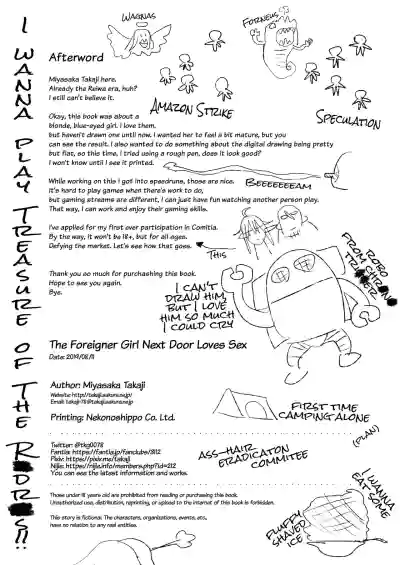 I WANNA PLAY TREASURE OF THE R■DR■S!!
WAGNAS
FORNEUS
Afterword
Miyasaka Takaji here.
Already the Reiwa era, huh?
I still can't believe it.
AMAZON STRIKE
SPECULATION
Okay, this book was about a
blonde, blue-eyed girl. I love them,
but haven't drawn one until now. I wanted her to feel a bit mature, but you
can see the result. I also wanted to do something about the digital drawing being pretty
but flat, so this time, I tried using a rough pen, does it look good?
I won't know until I see it printed.
BEEEEEEEAM
While working on this I got into speedruns, those are nice.
It's hard to play games when there's work to do,
but gaming streams are different, I can just have fun watching another person play.
That way, I can work and enjoy their gaming skills.
I've applied for my first ever participation in Comitia.
By the way, it won't be 18+, but for all ages.
Defying the market. Let's see how that goes.
THIS
ROBO
FROM CHR■NO
TR■■ER
Thank you so much for purchashing this book.
Hope to see you again.
Bye.
I CAN'T
DRAW HIM,
BUT I LOVE
HIM SO MUCH
I COULD CRY
The Foreigner Girl Next Door Loves Sex
Date: 2019/08/11
Author: Miyasaka Takaji
Printing: Nekonoshippo Co. Ltd.
FIRST TIME
CAMPING ALONE
(PLAN)
Twitter: @tkg0078
You can see the latest information and works.
ASS-HAIR
ERADICATON
COMMITEE
I WANNA
EAT SOME
Those under 18 years old are prohibited from reading or purchasing this book.
Unauthorized use, distribution, reprinting, or upload to the internet of this book is forbidden.
This story is fictional. The characters, organizations, events, etc.,
have no relation to any real entities.
FLUFFY
SHAVED
ICE